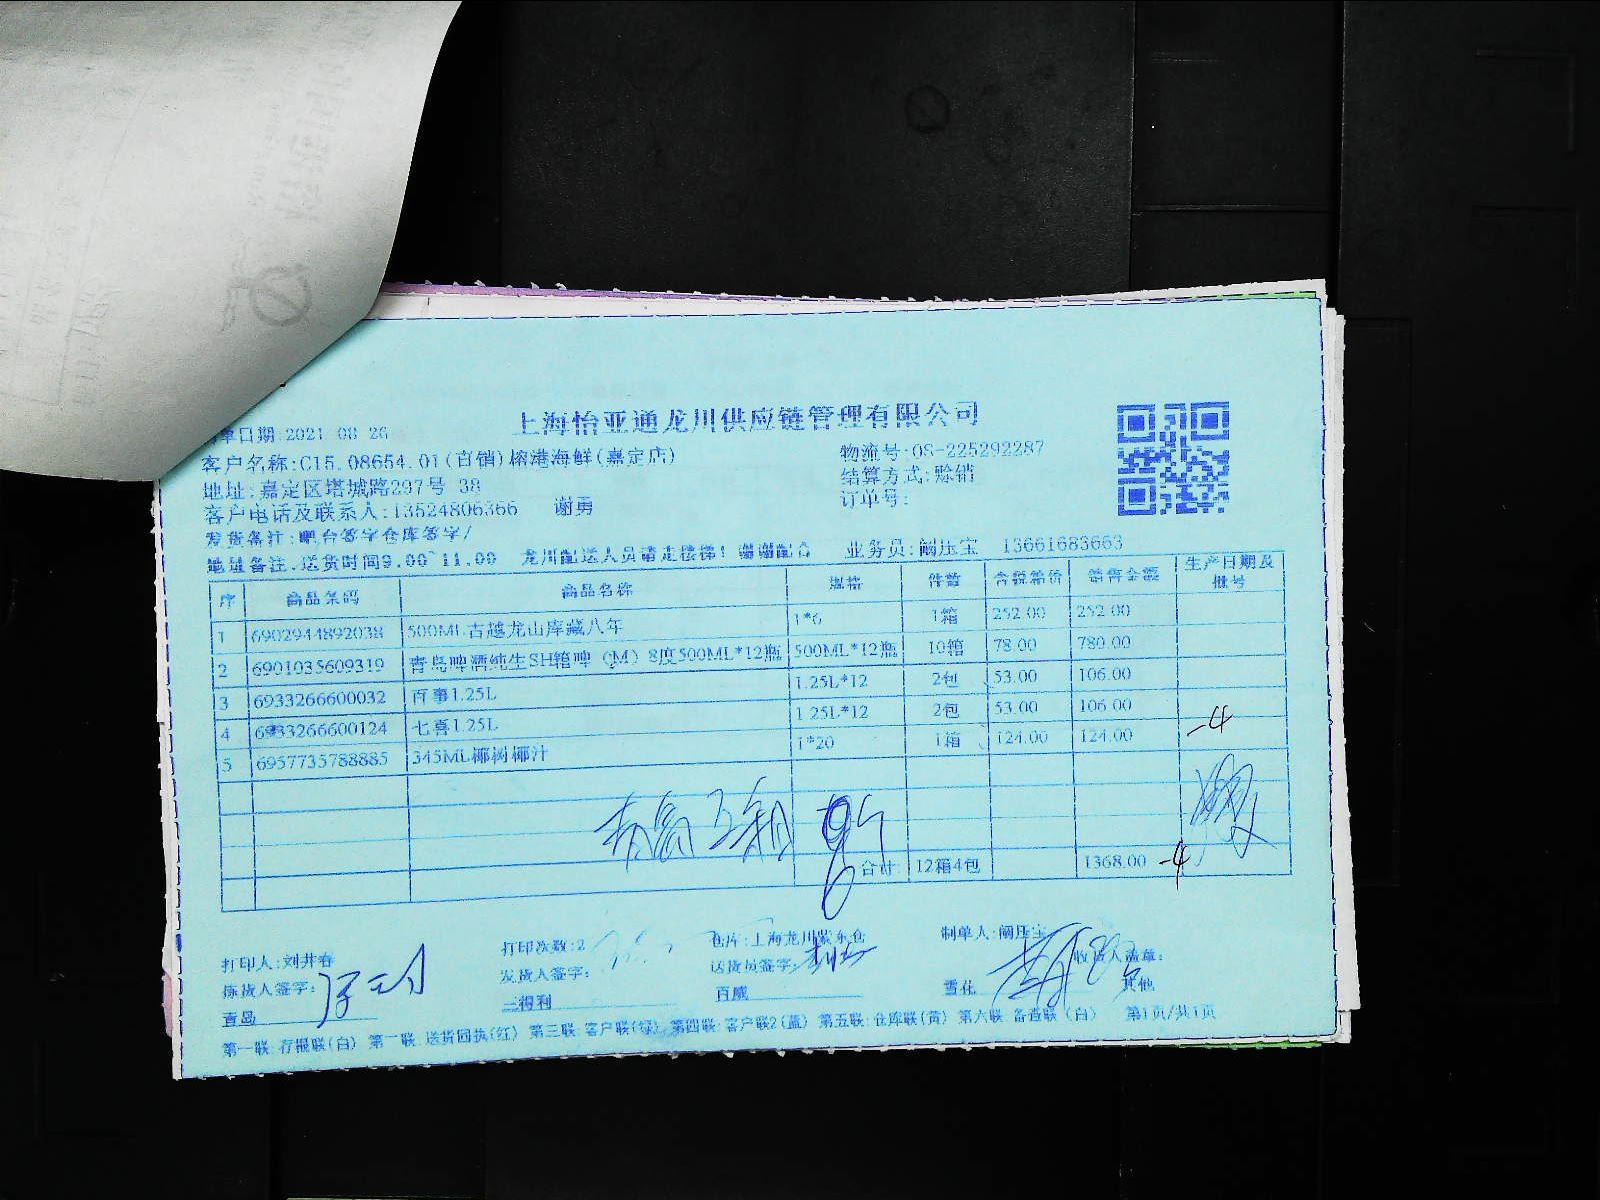 上海怡亚通龙川供应链管理有限公司
单日期:2021 08 26
客户名称:C15.08654.01(百销)榕港海鲜(嘉定店)
物流号:OS-225292287
地址:嘉定区塔城路297号 38
结算方式:赊销
客户电话及联系人:13524806366 谢勇
订单号:
发货备注:吧台签字仓库签字/
地址备注.送货时间9.00~11.00 龙川配送人员请走楼梯! 谢谢配合 业务员:阚压宝 13661683663
序 商品条码 商品名称 规格 件数 含税箱价 销售金额 生产日期及批号
1 6902944892038 500ML古越龙山库藏八年 1*6 1箱 252.00 252.00
2 6901035609319 青岛啤酒纯生SH箱啤 (M) 8度500ML*12瓶 500ML*12瓶 10箱 78.00 780.00
3 6933266600032 百事1.25L 1.25L*12 2包 53.00 106.00
4 6933266600124 七喜1.25L 1.25L*12 2包 53.00 106.00
5 6957735788885 345ML椰树椰汁 1*20 1箱 124.00 124.00 -4
合计: 12箱4包 1368.00 -4
打印人:刘井春 打印次数:2 仓库:上海龙川紫东仓 制单人:阚压宝
拣货人签字: 发货人签字: 送货员签字: 收货人盖章:
青岛 三得利 百威 雪花 其他
第一联:存根联(白) 第二联:送货回执(红) 第三联:客户联(绿) 第四联:客户联2(蓝) 第五联:仓库联(黄) 第六联:备查联(白) 第1页/共1页